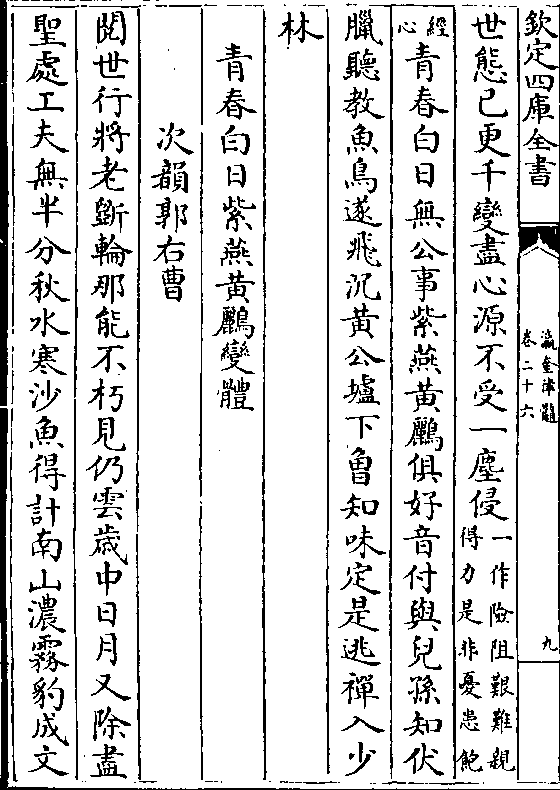 欽定四庫全書
瀛奎律髓
卷二十六
九
世態已更千變盡心源不受一塵侵一作險阻艱難親得力是非憂患飽
經心青春白日無公事紫燕黃鸝俱好音付與兒孫知伏
臘聽教魚鳥遂飛沉黃公壚下曾知味定是逃禪入少
林
青春白日紫燕黃鸝變體
次韻郭右曹
閱世行將老斵輪那能不朽見仍雲歲中日月又除盡
聖處工夫無半分秋水寒沙魚得計南山濃霧豹成文